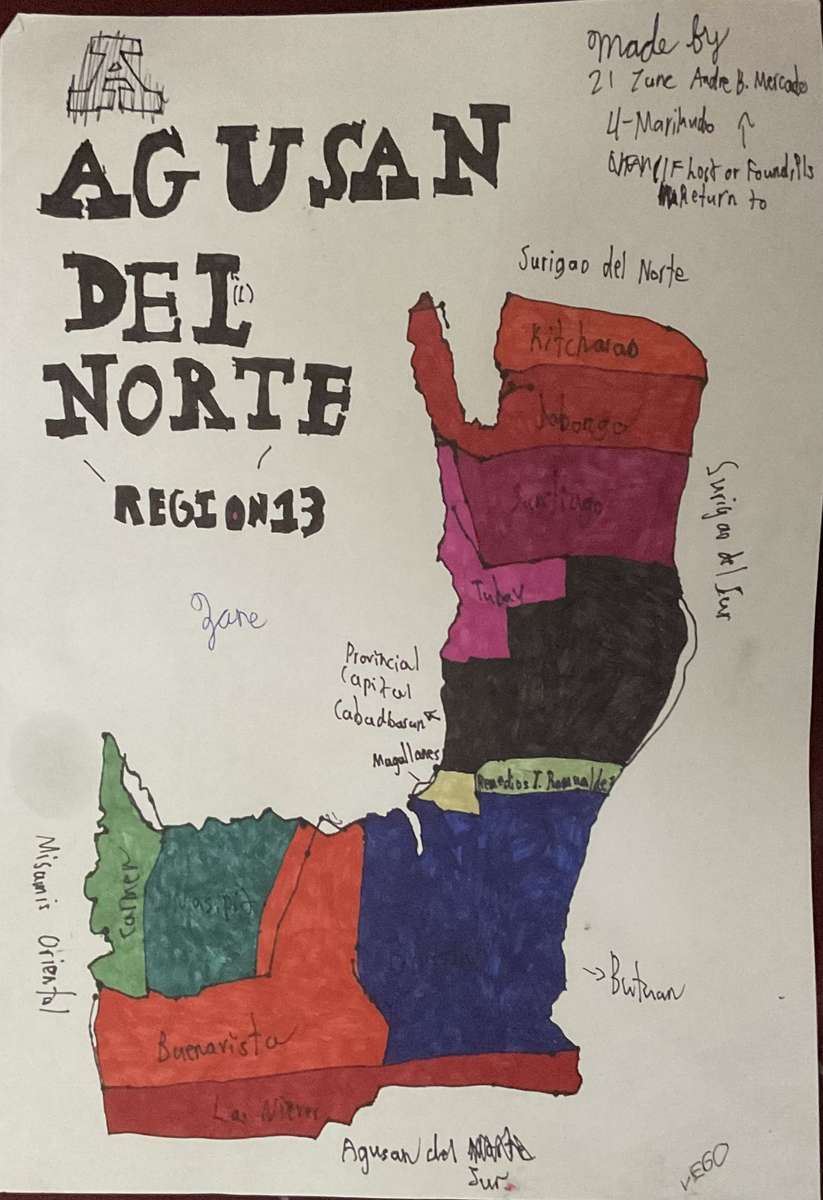 A
made by
21 Zane Andre B. Mercado
4-Marikudo ↑
If Lost or Found, Pls
Return to
AGUSAN
DEL
(L)
NORTE
REGION 13
Zane
Surigao del Norte
Kitcharao
Jabonga
Santiago
Surigao del Sur
Tubay
Provincial
Capital
Cabadbaran
Magallanes
Remedios T. Romualdez
Misamis Oriental
Carmen
Nasipit
Butuan
Buenavista
Las Nieves
Agusan del
Sur